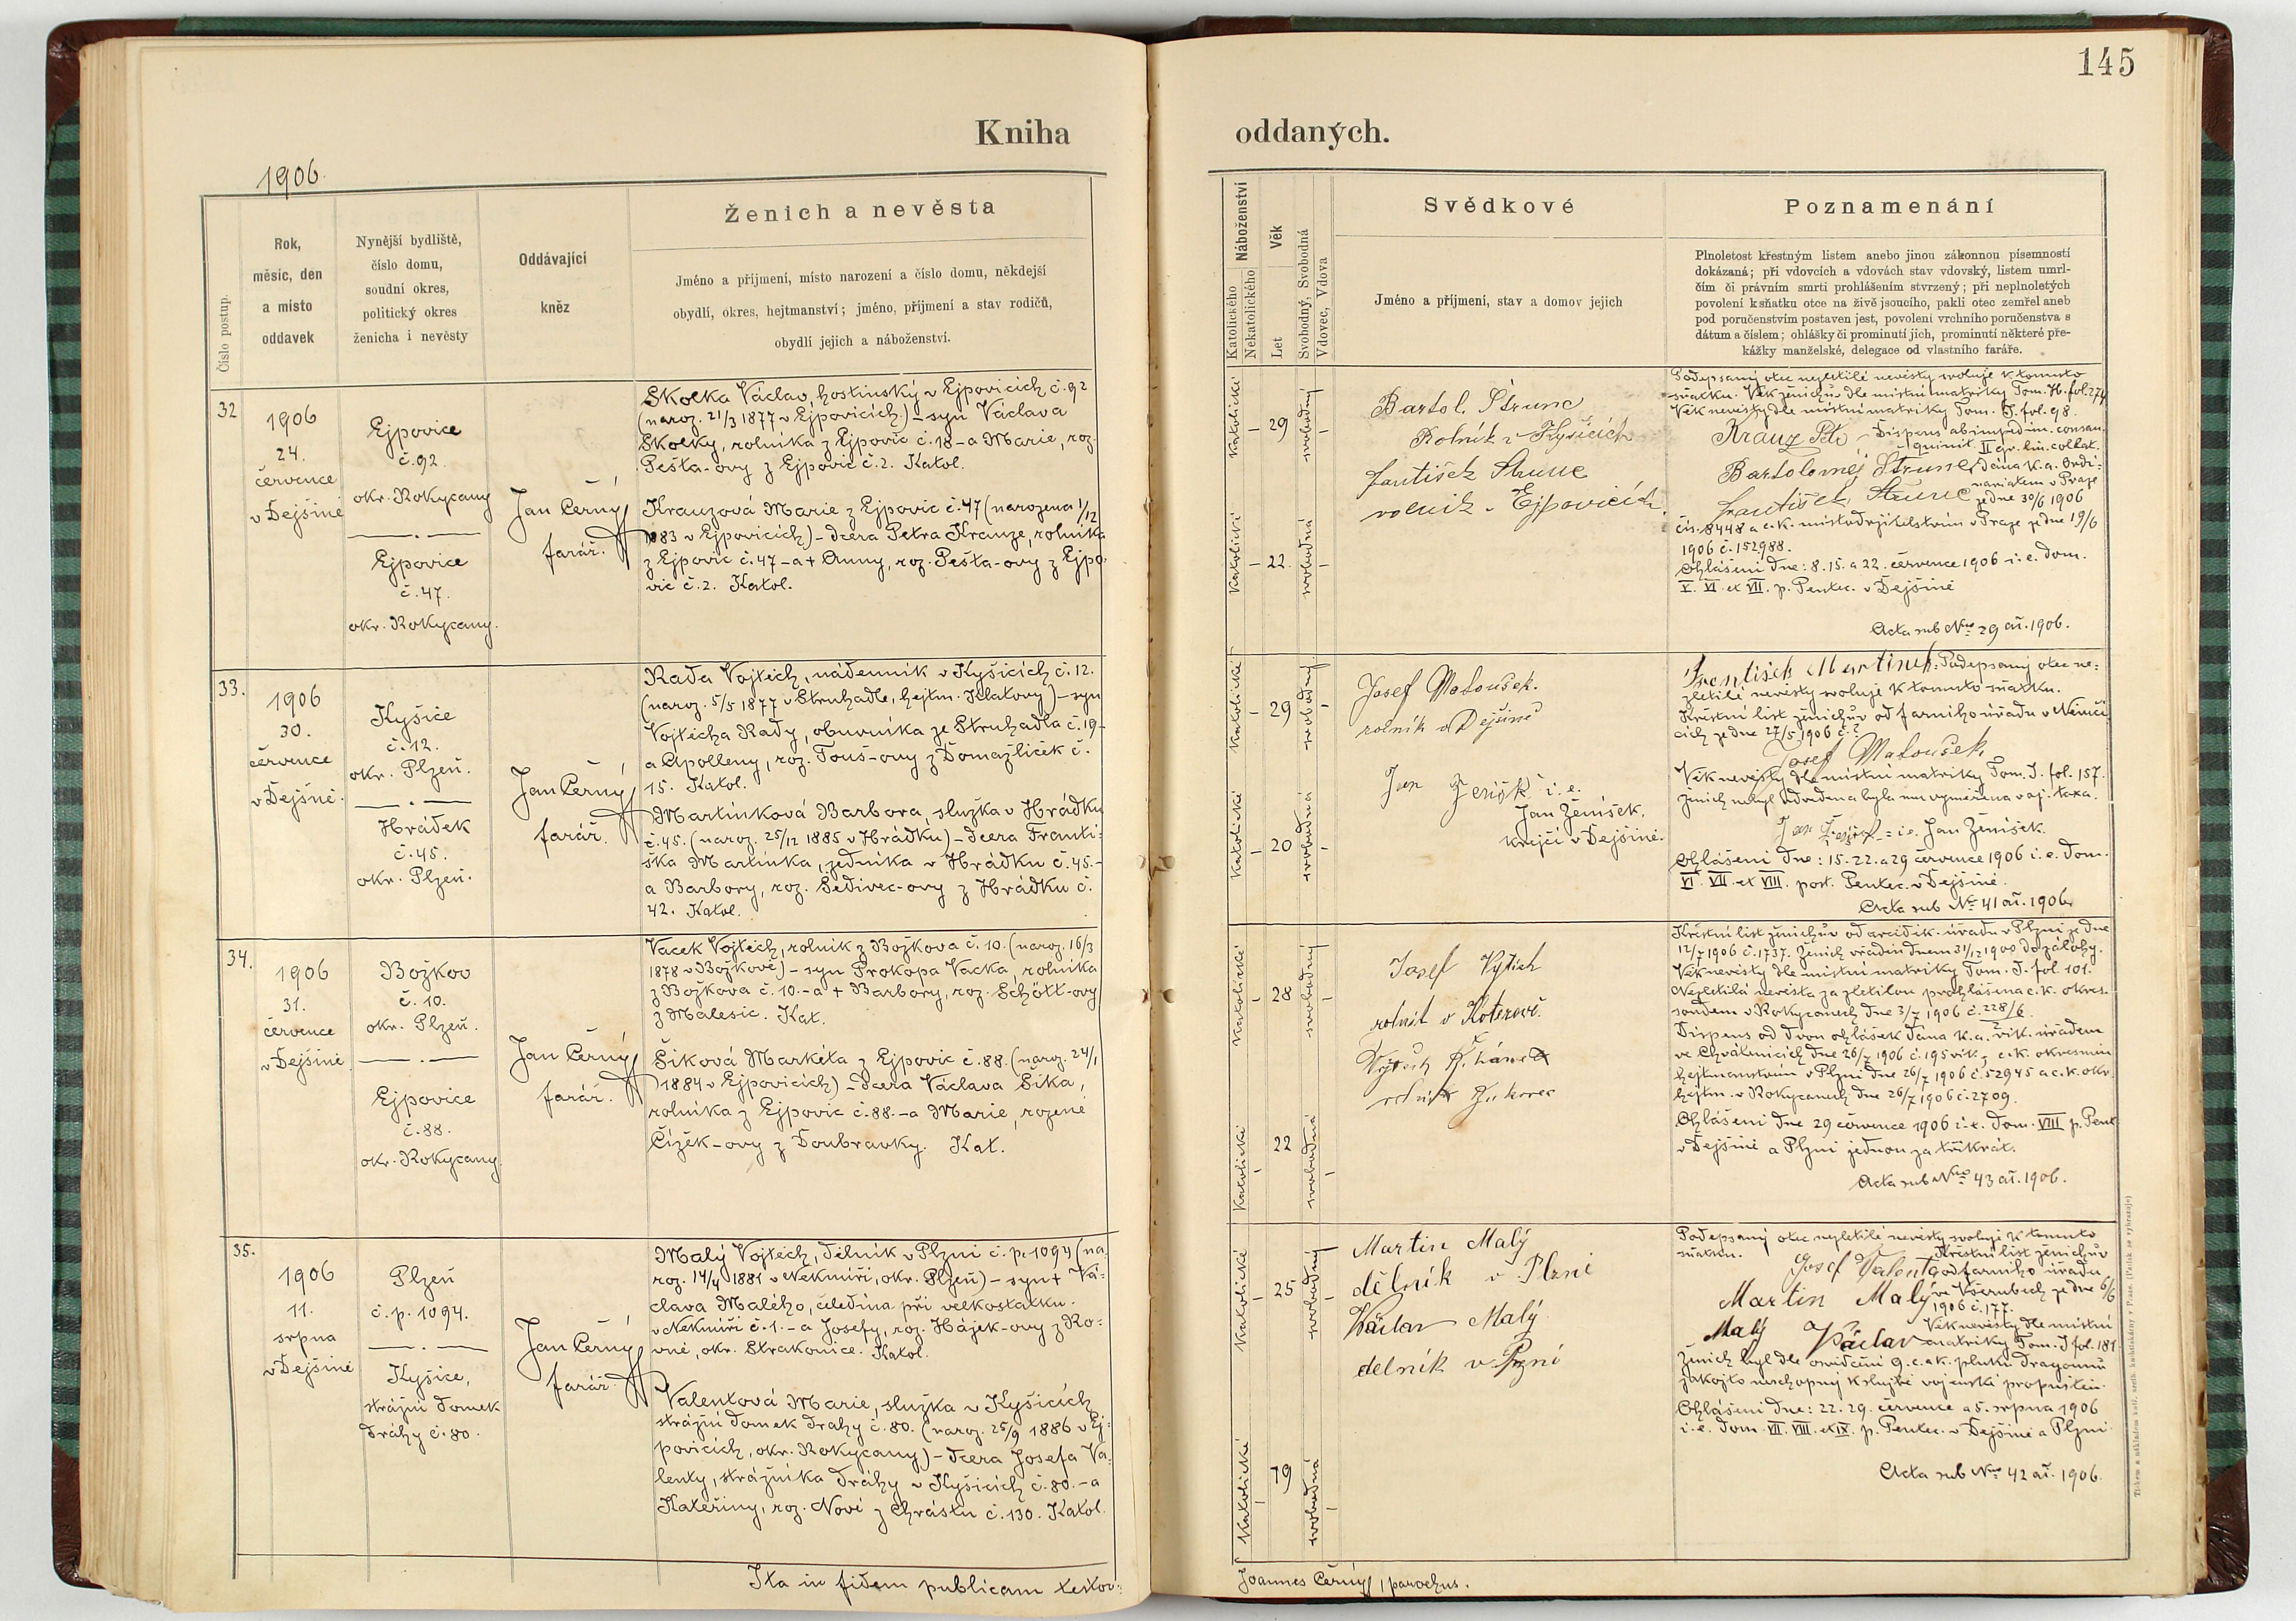 145
Kniha
oddaných.
1906.
Číslo postup.
Rok,
měsíc, den
a místo
oddavek
Nynější bydliště,
číslo domu,
soudní okres,
politický okres
ženicha i nevěsty
Oddávající
kněz
Ženich a nevěsta
Jméno a příjmení, místo narození a číslo domu, někdejší
obydlí, okres, hejtmanství; jméno, příjmení a stav rodičů,
obydlí jejich a náboženství.
32
1906
24.
července
v Dejšině
Ejpovice
č. 92.
okr. Rokycany
Ejpovice
č. 47.
okr. Rokycany.
Jan Černý
farář.
Skolka Václav, hostinský v Ejpovicích č. 92
(naroz. 21/3 1877 v Ejpovicích) – syn Václava
Skolky, rolníka z Ejpovic č. 18 – a Marie, roz.
Pešta-ovy z Ejpovic č. 2. Katol.
Krauzová Marie z Ejpovic č. 47 (narozena 1/12
1883 v Ejpovicích) – dcera Petra Krauze, rolníka
z Ejpovic č. 47 – a + Anny, roz. Pešta-ovy z Ejpo-
vic č. 2. Katol.
33.
1906
30.
července
v Dejšině.
Kyšice
č. 12.
okr. Plzeň.
Hrádek
č. 45.
okr. Plzeň.
Jan Černý
farář.
Raďa Vojtěch, nádenník v Kyšicích č. 12.
(naroz. 5/5 1877 v Struhadle, hejtm. Klatovy) – syn
Vojtěcha Rady, obuvníka ze Struhadla č. 19 –
a Apolleny, roz. Touš-ovy z Domažliček č.
15. Katol.
Martínková Barbora, služka v Hrádku
č. 45. (naroz. 25/12 1885 v Hrádku) – dcera Franti-
ška Martínka, zedníka v Hrádku č. 45. –
a Barbory, roz. Šedivec-ovy z Hrádku č.
42. Katol.
34.
1906
31.
července
v Dejšině
Božkov
č. 10.
okr. Plzeň.
Ejpovice
č. 88.
okr. Rokycany.
Jan Černý
farář.
Vacek Vojtěch, rolník z Božkova č. 10. (naroz. 16/3
1878 v Božkově) – syn Prokopa Vacka, rolníka
z Božkova č. 10. – a + Barbory, roz. Schött-ovy
z Malesic. Kat.
Šiková Markéta z Ejpovic č. 88. (naroz. 24/1
1884 v Ejpovicích) – dcera Václava Šika,
rolníka z Ejpovic č. 88. – a Marie, rozené
Čížek-ovy z Doubravky. Kat.
35.
1906
11.
srpna
v Dejšině
Plzeň
č. p. 1094.
Kyšice,
strážní domek
dráhy č. 80.
Jan Černý
farář.
Malý Vojtěch, dělník v Plzni č. p. 1094 (na-
roz. 14/4 1881 v Nekmíři, okr. Plzeň) – syn + Vá-
clava Malého, čeledína při velkostatku
v Nekmíři č. 1. – a Josefy, roz. Hájek-ovy z Ro-
vné, okr. Strakonice. Katol.
Valentová Marie, služka v Kyšicích
strážní domek dráhy č. 80. (naroz. 25/9 1886 v Ej-
povicích, okr. Rokycany) – dcera Josefa Va-
lenty, strážníka dráhy v Kyšicích č. 80. – a
Kateřiny, roz. Nové z Chrástu č. 130. Katol.
Ita in fidem publicam testor:
Náboženství
Katolického
Nekatolického
Věk
Let
Svobodný, Svobodná
Vdovec, Vdova
Svědkové
Jméno a příjmení, stav a domov jejich
Poznamenání
Plnoletost křestným listem anebo jinou zákonnou písemností
dokázaná; při vdovcích a vdovách stav vdovský, listem umrl-
čím či právním smrti prohlášením stvrzený; při neplnoletých
povolení k sňatku otce na živě jsoucího, pakli otec zemřel aneb
pod poručenstvím postaven jest, povolení vrchního poručenstva s
dátum a číslem; ohlášky či prominutí jich, prominutí některé pře-
kážky manželské, delegace od vlastního faráře.
Katolické
29
svobodný
Katolické
22.
svobodná
Bartol. Strunc
Rolník v Kyšicích
František Strunc
rolník v Ejpovicích.
Podepsaný otec nezletilé nevěsty svoluje k tomuto
sňatku. Věk ženichův dle místní matriky Tom. H. fol. 274
Věk nevěsty dle místní matriky Tom. J. fol. 98.
Krauz Petr – Dispens ab impedim. consan-
guinit. II gr. lin. collat.
Bartolomněj Strunc, dána k. a. Ordi-
nariatem v Praze
František Strunc ze dne 30/6 1906
čís. 8448 a c. k. místodržitelstvím v Praze ze dne 19/6
1906 č. 152988.
Ohlášeni dne: 8. 15. a 22. července 1906 i. e. dom.
V. VI. et VII. p. Pentec. v Dejšině
Acta sub Nro 29 añ. 1906.
Katolické
29
svobodný
Katolické
20
svobodná
Josef Matoušek.
rolník v Dejšině
Jan Ženíšk i. e.
Jan Ženíšek,
krejčí v Dejšině.
František Martinek: Podepsaný otec ne-
zletilé nevěsty svoluje k tomuto sňatku.
Křestní list ženichův od farního úřadu v Němči-
cích ze dne 27/5 1906 č. ?
Josef Matoušek
Věk nevěsty dle místní matriky Tom. J. fol. 157.
Ženich nebyl odveden a byla mu vyměřena voj. taxa.
i. e. Jan Ženíšek.
Ohlášeni dne: 15. 22. a 29 července 1906 i. e. dom.
VI. VII. et VIII. post. Pentec. v Dejšině.
Acta sub No 41 añ. 1906.
Katolické
28
svobodný
Katolické
22
svobodná
Josef
rolník v Koterově.
rolník
Křestní list ženichův od arciděk. úřadu v Plzni ze dne
12/7 1906 č. 1737. Ženich vřaděn dnem 31/12 1900 do zálohy.
Věk nevěsty dle místní matriky Tom. J. fol. 101.
Nezletilá nevěsta za zletilou prohlášena c. k. okres.
soudem v Rokycanech dne 3/7 1906 č. 228/6
2
Dispens od dvou ohlášek dána k. a. vik. úřadem
ve Chválenicích dne 26/7 1906 č. 195 vik., c. k. okresním
hejtmanstvím v Plzni dne 26/7 1906 č. 52945 a c. k. okr.
hejtm. v Rokycanech dne 26/7 1906 č. 2709.
Ohlášeni dne 29 července 1906 i. e. dom. VIII p. Pent.
v Dejšině a Plzni jednou za třikrát.
Acta sub Nro 43 añ. 1906.
Katolické
25
svobodný
Katolické
19
svobodná
Martin Malý
dělník v Plzni
Václav Malý
delník v Plzni
Podepsaný otec nezletilé nevěsty svoluji k tomuto
sňatku. Křestní list ženichův
Josef Valenta od farního úřadu
Martin Malý ve Všerubech ze dne 6/6
1906 č. 177.
Věk nevěsty dle místní
Malý Václav matriky Tom. J fol. 181
Ženich byl dle osvědčení 9. c. a k. pluku dragounů
jakožto neschopný k službě vojenské propuštěn.
Ohlášeni dne: 22. 29. července a 5. srpna 1906
i. e. dom. VII. VIII. et IX. p. Pentec. v Dejšině a Plzni
Acta sub Nro 42 añ. 1906.
Joannes Černý, parochus.